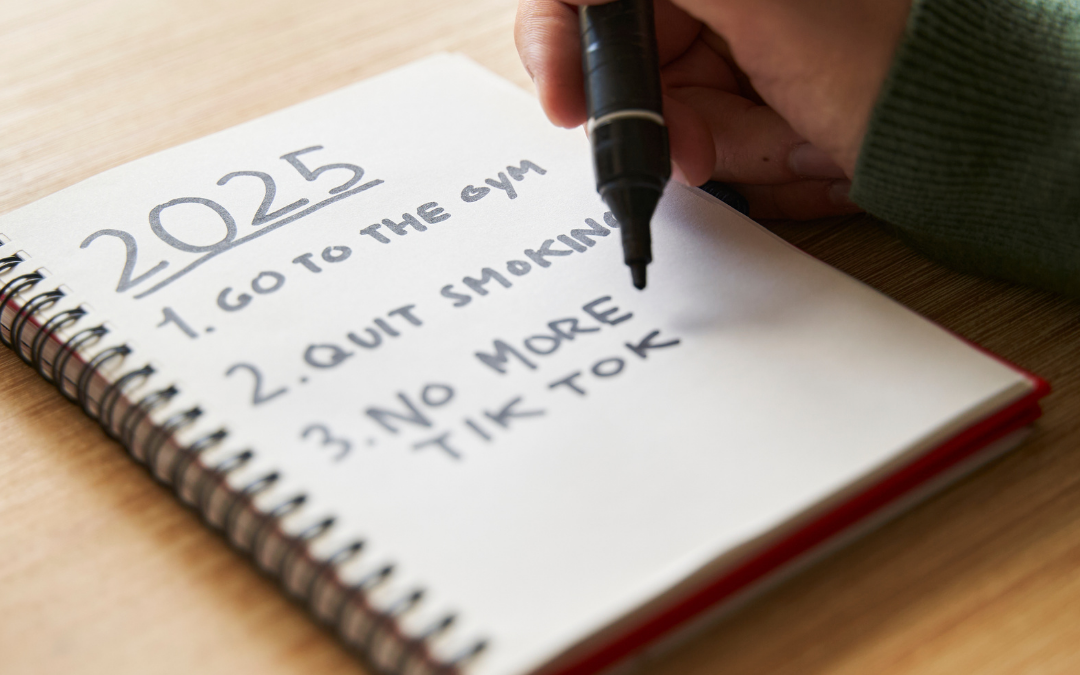 2025
1. GO TO THE GYM
2. QUIT SMOKING
3. NO MORE
TIK TOK